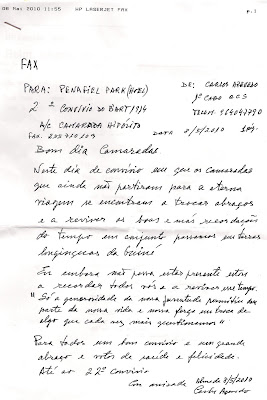 08 Mai 2010 11:55 HP LASERJET FAX p.1
FAX
PARA: PENAFIEL PARK (HOTEL) DE: CARLOS AZEVEDO
2º CONVÍVIO DO BART/1914 1º CABO CCS
A/C CAMARADA HIPÓLITO TELEM.
FAX. DATA 8/5/2010 1 pág.
Bom dia Camaradas
Neste dia de convívio em que os camaradas
que ainda não partiram para a eterna
viagem se encontram a trocar abraços
e a reviver as boas e más recordações
do tempo em conjunto passamos em terras
longínquas da Guiné
Embora não possa estar presente estou
a recordar todos vós e a reviver esse tempo.
"Só a generosidade da nossa juventude permitiu dar
parte da nossa vida e nossa força em troca de
algo que cada vez mais questionamos"
Para todos um bom convívio e um grande
abraço e votos de saúde e felicidade.
Até ao 22º convívio
Com amizade Almada 8/5/2010
Carlos Azevedo